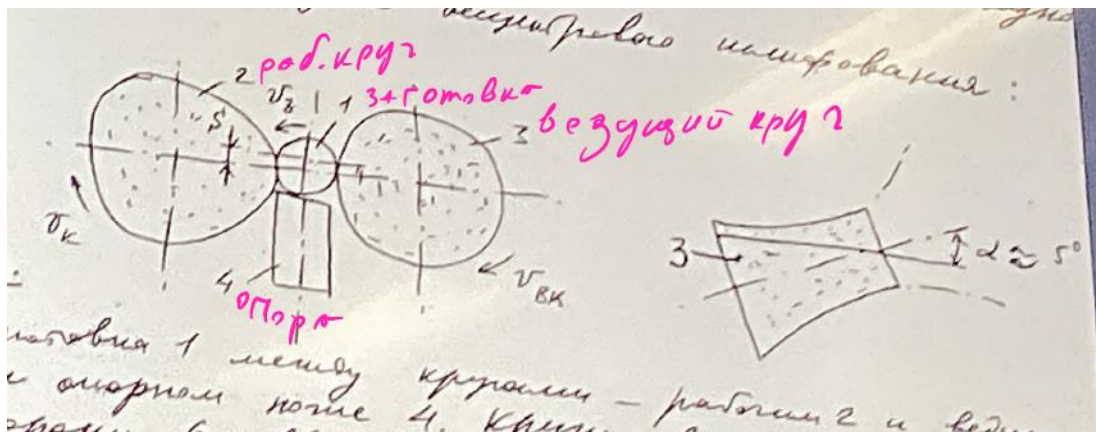 бесцентрового шлифования :
2 раб. круг
vз 1 Заготовка
3 Ведущий круг
S
vк
vвк
4
опора
3 α ≈ 5°
1 между кругами – рабочим 2 и
опорном ноже 4.